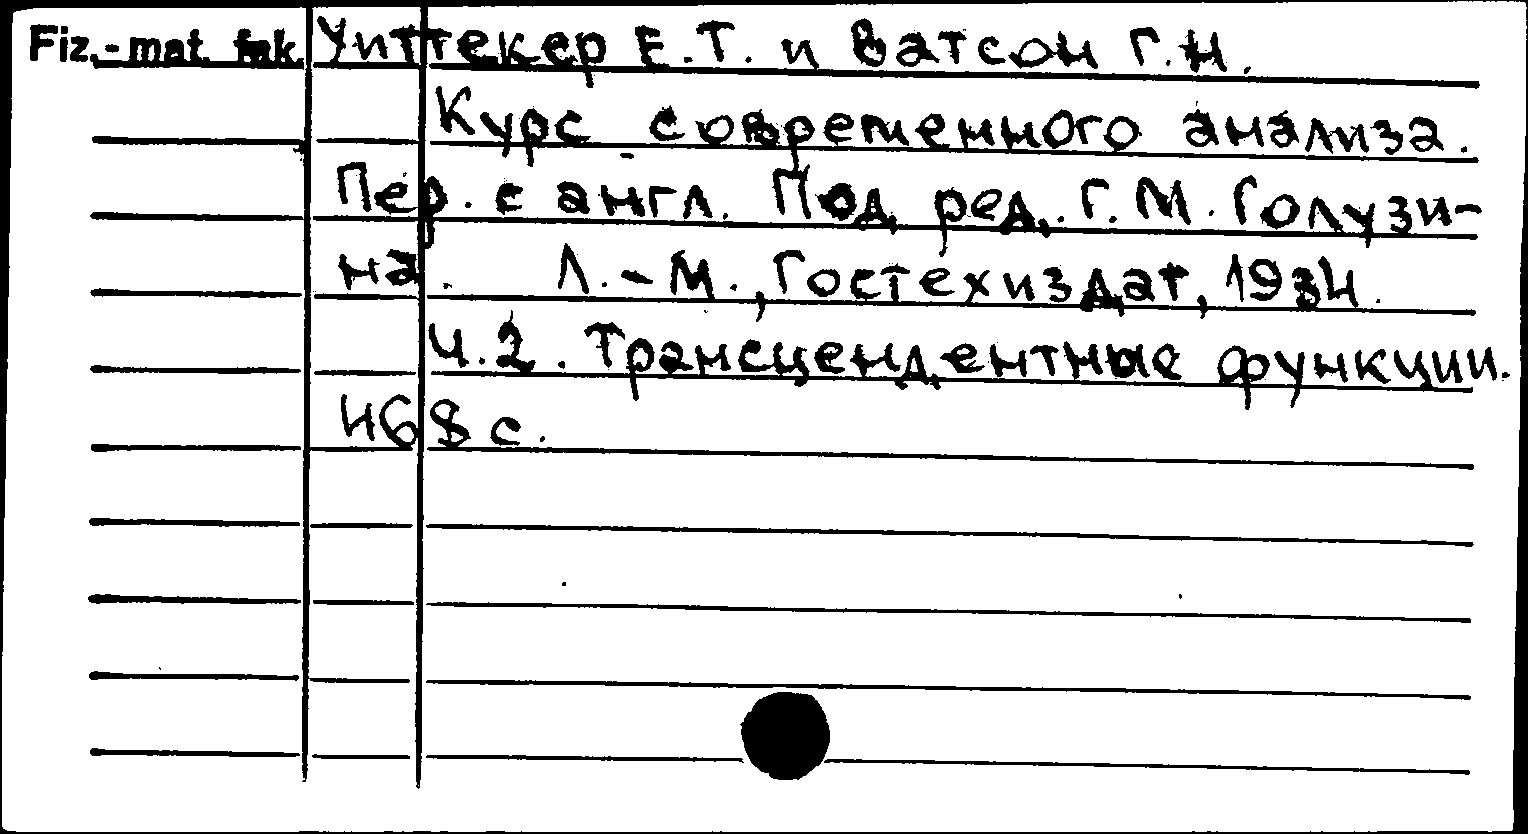 Fiz.-mat. fak. Уиттекер Е.Т. и Ватсон Г.Н.
Курс современного анализа.
Пер. с англ. Под ред. Г.М. Голузи-
на. Л.-М., Гостехиздат, 1934.
Ч.2. Трансцендентные функции.
468 с.